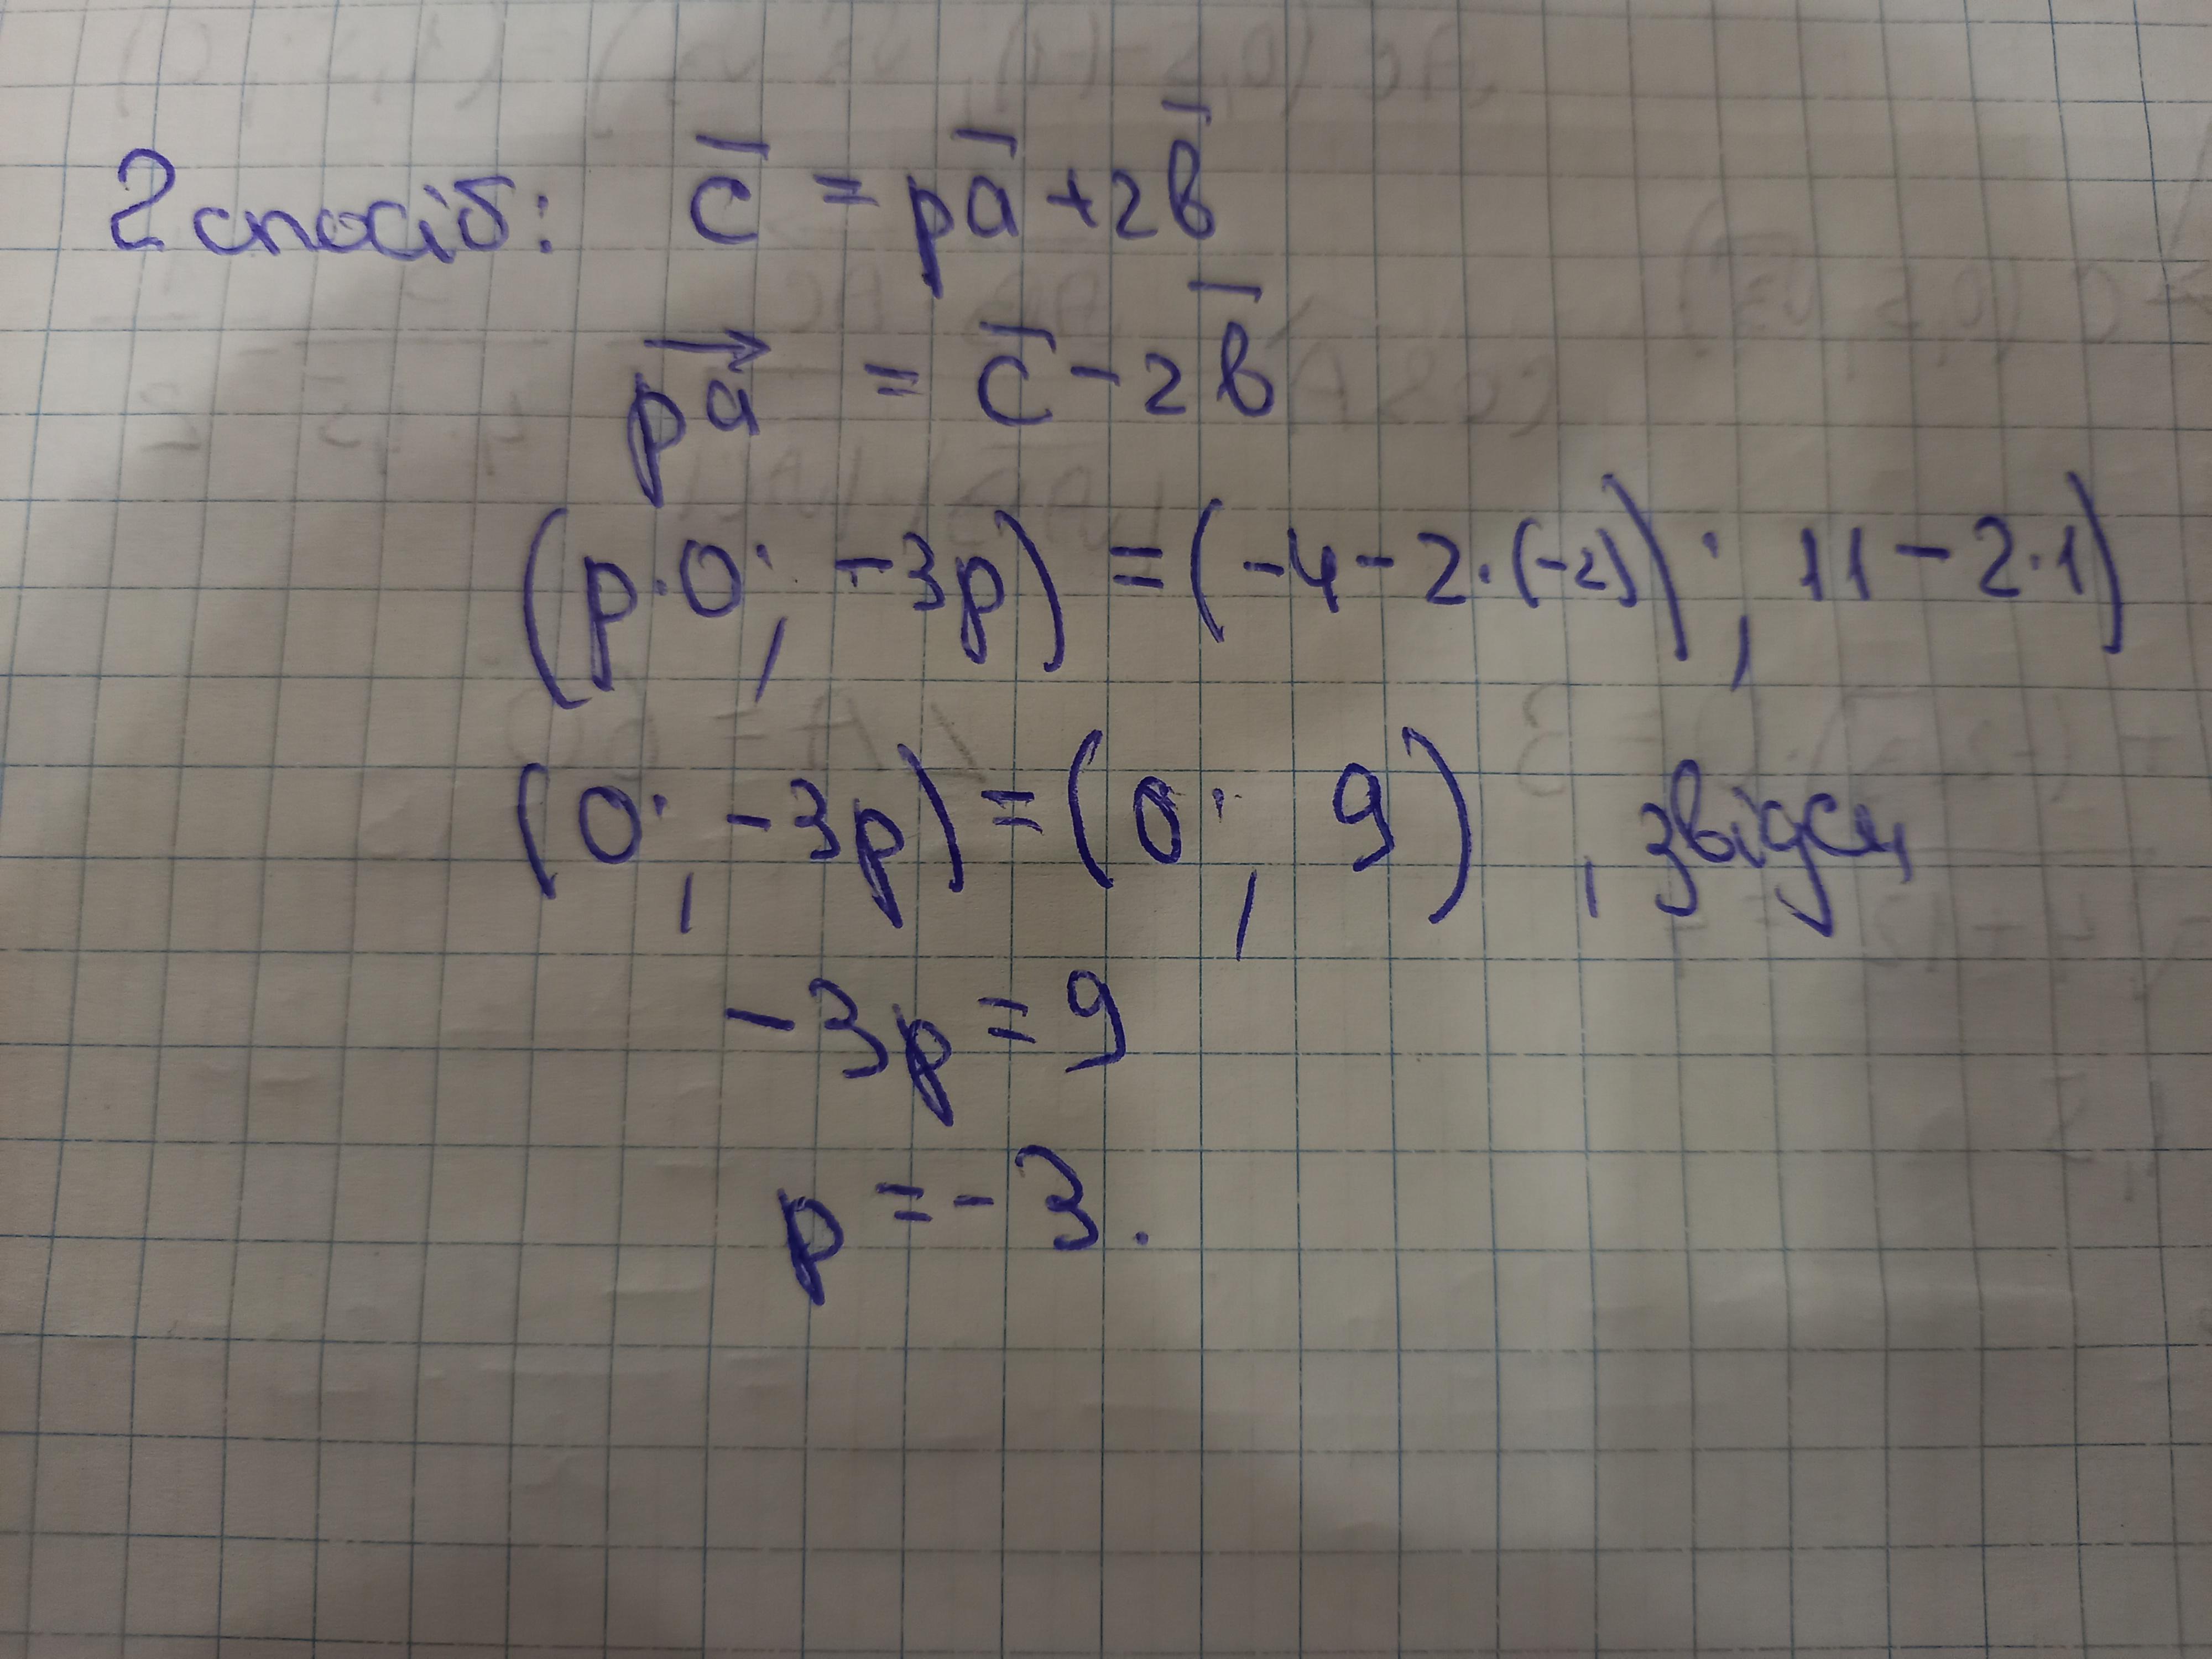 2 спосіб: c̅ = pa̅ + 2b̅
pa⃗ = c̅ - 2b̅
(p·0; -3p) = (-4-2·(-2)); 11-2·1)
(0; -3p) = (0; 9), звідси
-3p = 9
p = -3.